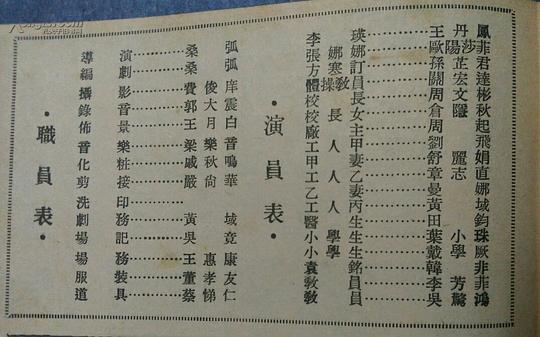 ·演員表·
李瑛……王丹鳳
張娜娜……歐陽莎菲
方寒訂……孫芷君
體操敎員……關宏達
校長……周文彬
校長女……倉隱秋
廠主……周起
工人甲……劉飛
甲妻……舒麗娟
工人乙……章志直
乙妻……曼娜
工人丙……黃域
醫生……田鈞
小學生……葉小珠
小學生……戴學厥
袁銘……韓非
敎員……李芳菲
敎員……吳驚鴻
·職員表·
導演……桑弧
編劇……桑弧
攝影……費俊庠
錄音……郭大震
佈景……王月白
音樂……梁樂音
化粧……戚秋鳴
剪接……嚴尙華
洗印
劇務……黃域
場記……吳竟
場務……王惠康
服裝……董孝友
道具……蔡悌仁